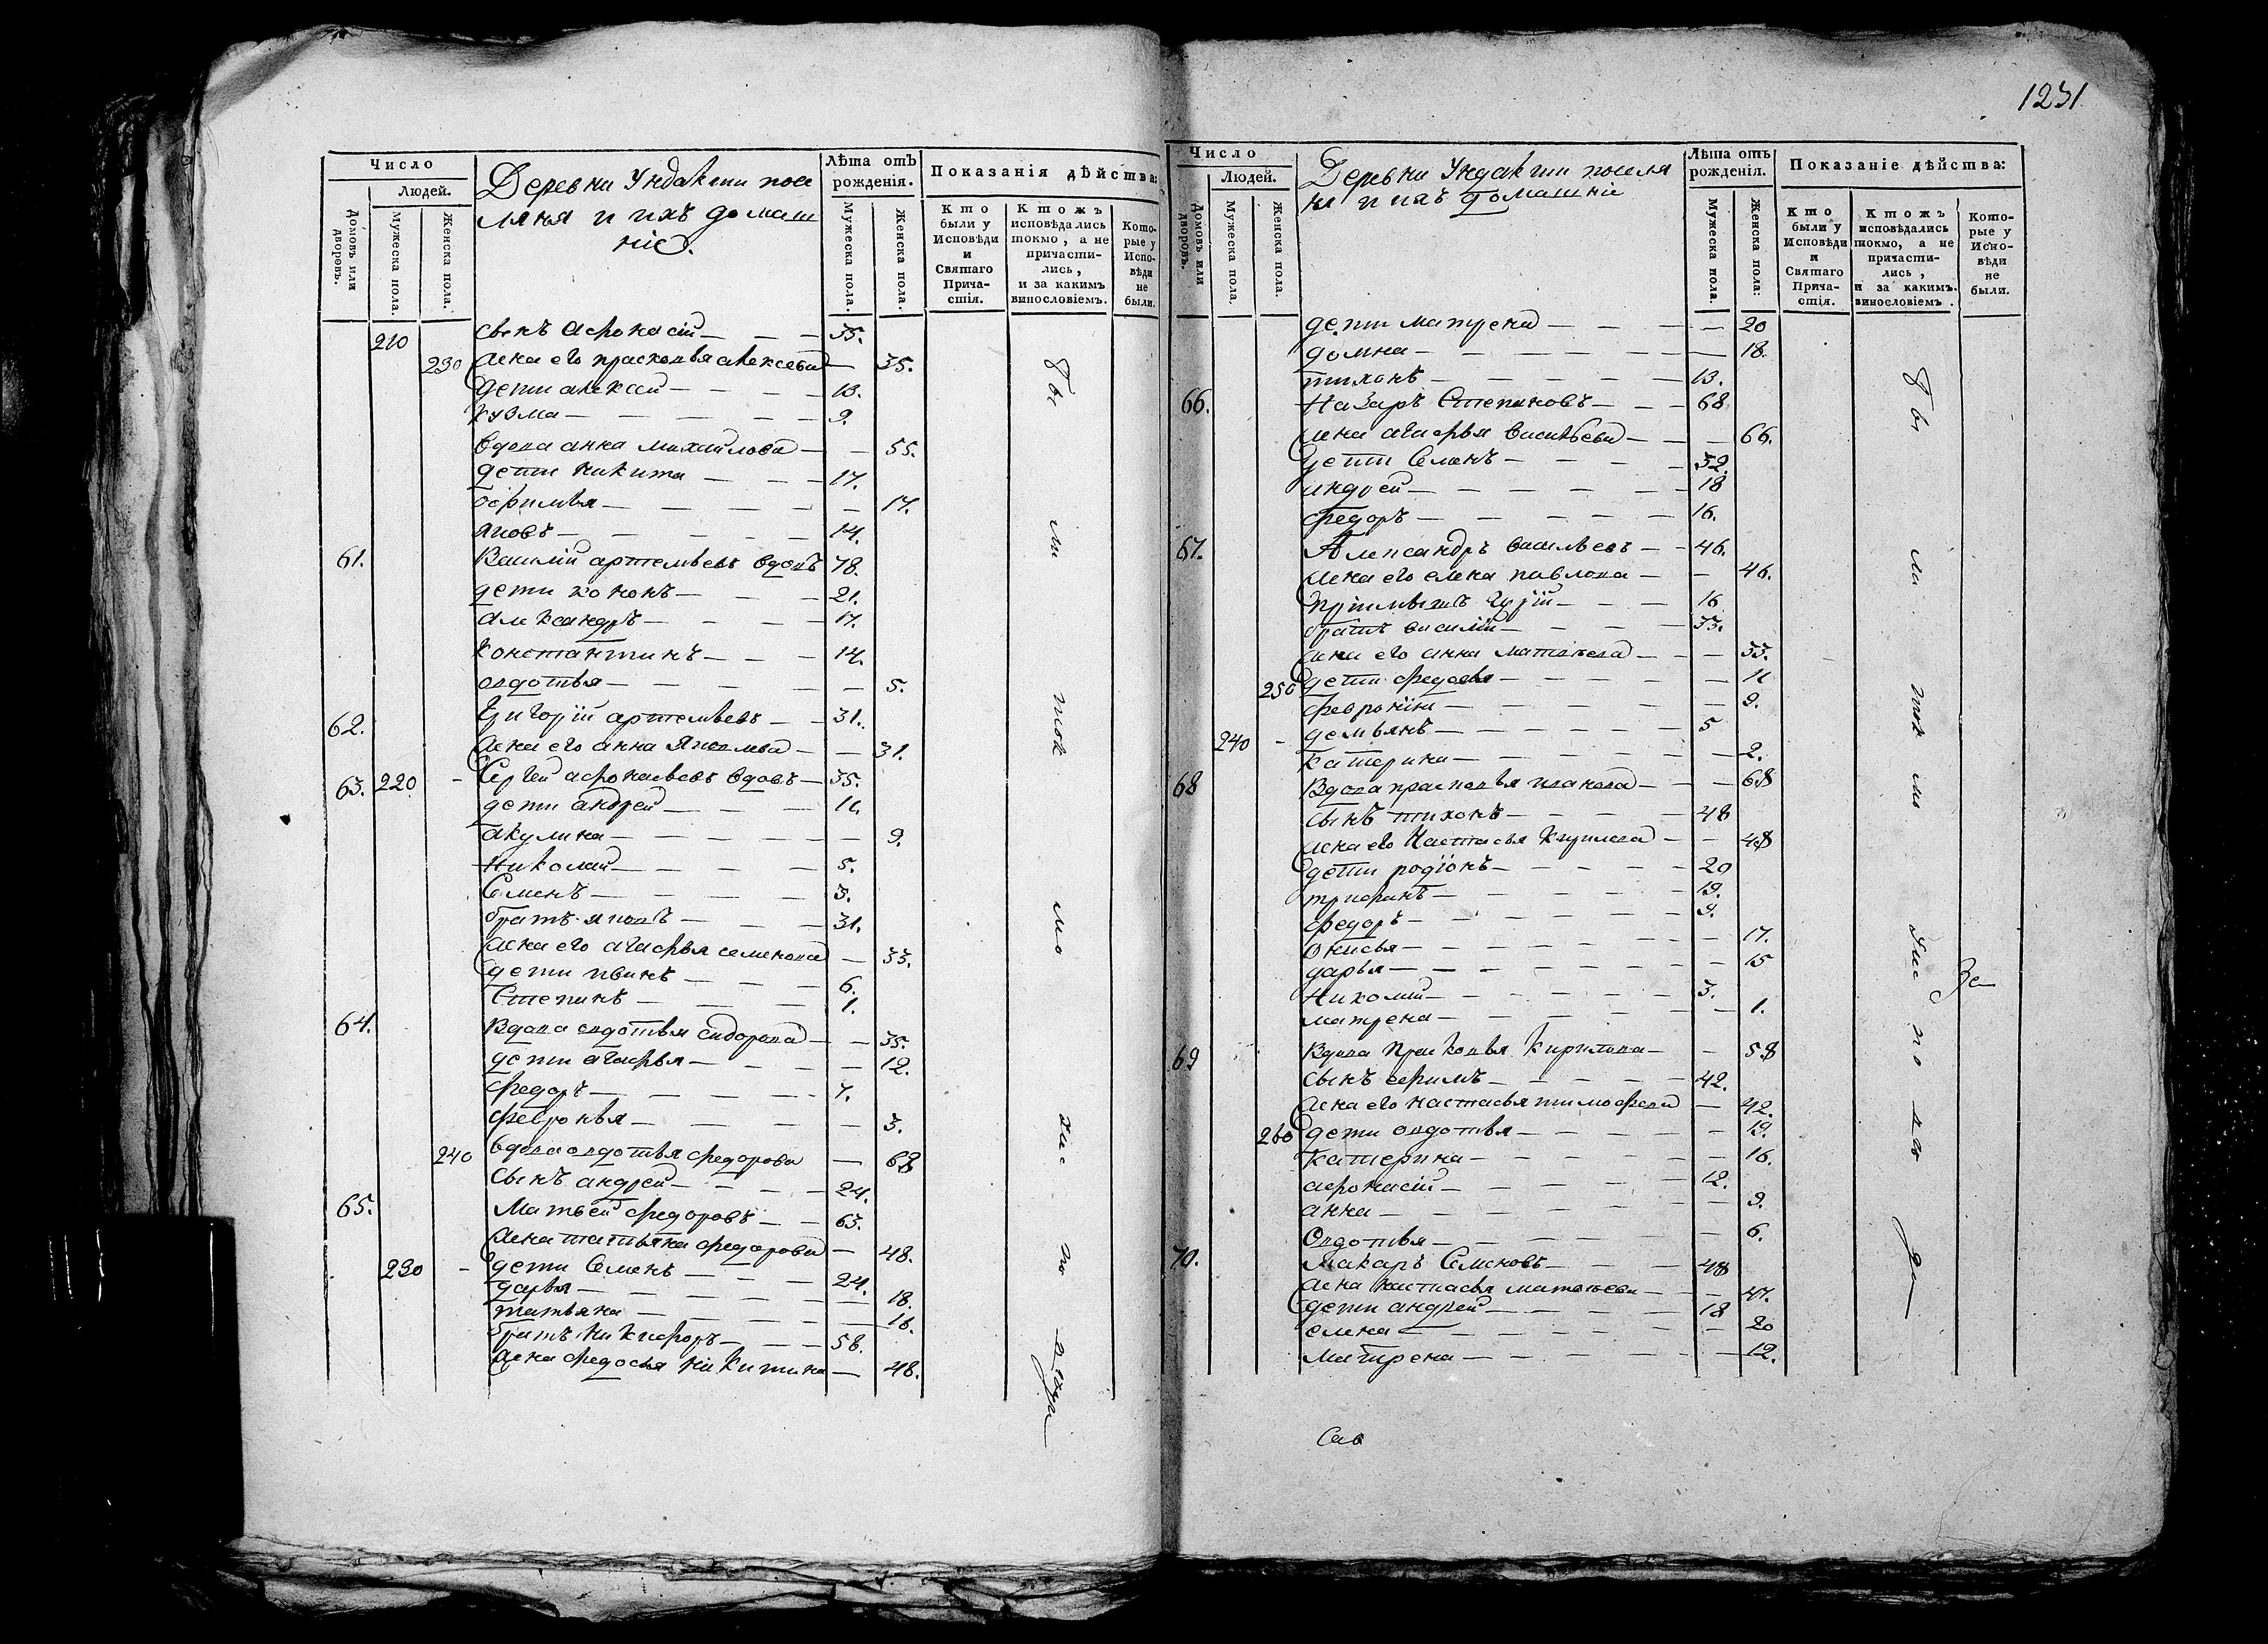 1231
Число
Людей.
Домовъ или дворовъ.
Мужеска пола.
Женска пола.
Деревни Ундакти посе
ляня и ихъ домаш
ніе.
Лѣта отъ рожденія.
Мужеска пола.
Женска пола.
Показанія дѣйства:
Кто были у Исповѣди и Святаго Прича-стія.
Ктожъ исповѣдались токмо, а не причасти-лись, и за какимъ винословіемъ.
Кото-рые у Испо-вѣди не были.
210 сынъ Афонасій — 35.
230 жена его прасковья алексева — 35.
дети алексей — 13.
кузма — 9.
вдова анна михайлова — 55.
дети никита — 17.
офимья — 17.
яковъ — 14.
61. Василій артемьевъ вдовъ 78.
дети кононъ — 21.
александръ — 17.
константинъ — 14.
овдотья — 5.
62. Григорій артемьевъ — 31.
жена его анна яковлева — 31.
63. 220 - Сергей афонасьевъ вдовъ — 35.
дети андрей — 11.
акулина — 9.
Николай — 5.
Семенъ — 3.
братъ яковъ — 31.
жена его агафья семенова — 33.
дети иванъ — 6.
Степанъ — 1.
64. Вдова овдотья сидорова — 35.
дети агафья — 12.
федоръ — 7.
февронья — 3.
240 вдова овдотья федорова — 68
сынъ андрей — 24.
65. Матвей федоровъ — 63.
жена татьяна федорова — 48.
230 - дети Семенъ — 24.
дарья — 18.
татьяна — 16.
братъ никифоръ — 58.
жена федосья никитина — 48.
Число
Людей.
Домовъ или дворовъ.
Мужеска пола.
Женска пола.
Деревни Ундакти поселя
не и ихъ домашніе
Лѣта отъ рожденія.
Мужеска пола.
Женска пола:
Показаніе дѣйства:
Кто были у Исповѣди и Святаго Прича-стія.
Ктожъ исповѣдались токмо, а не причасти-лись, и за какимъ винословіемъ.
Кото-рые у Испо-вѣди не были.
дети матрена — 20
домна — 18.
тихонъ — 13.
66. Назаръ Степановъ — 68
жена агафья васильева — 66.
дети Семенъ — 32.
андрей — 18
федоръ — 16.
67. Александръ васильевъ — 46.
жена его елена павлова — 46.
16
братъ василій — 33.
жена его анна матвеева — 33.
250 дети федосья — 11
февронія — 9.
240 - демьянъ — 5
катерина — 2.
68 Вдова прасковья иванова — 68
сынъ тихонъ — 48
жена его Настасья — 48
дети родіонъ — 20
трифанъ — 19.
федоръ — 9.
17.
дарья — 15
Николай — 3.
матрена — 1.
69 Вдова Прасковья Кирилова — 58
сынъ ефимъ — 42.
жена его настасья тимофеева — 42.
260 дети овдотья — 19.
катерина — 16.
афонасій — 12.
анна — 9.
Овдотья — 6.
70. Макаръ Семеновъ — 48
жена настасья матвеева — 47.
дети андрей — 18
елена — 20
Матрена — 12.
Сав